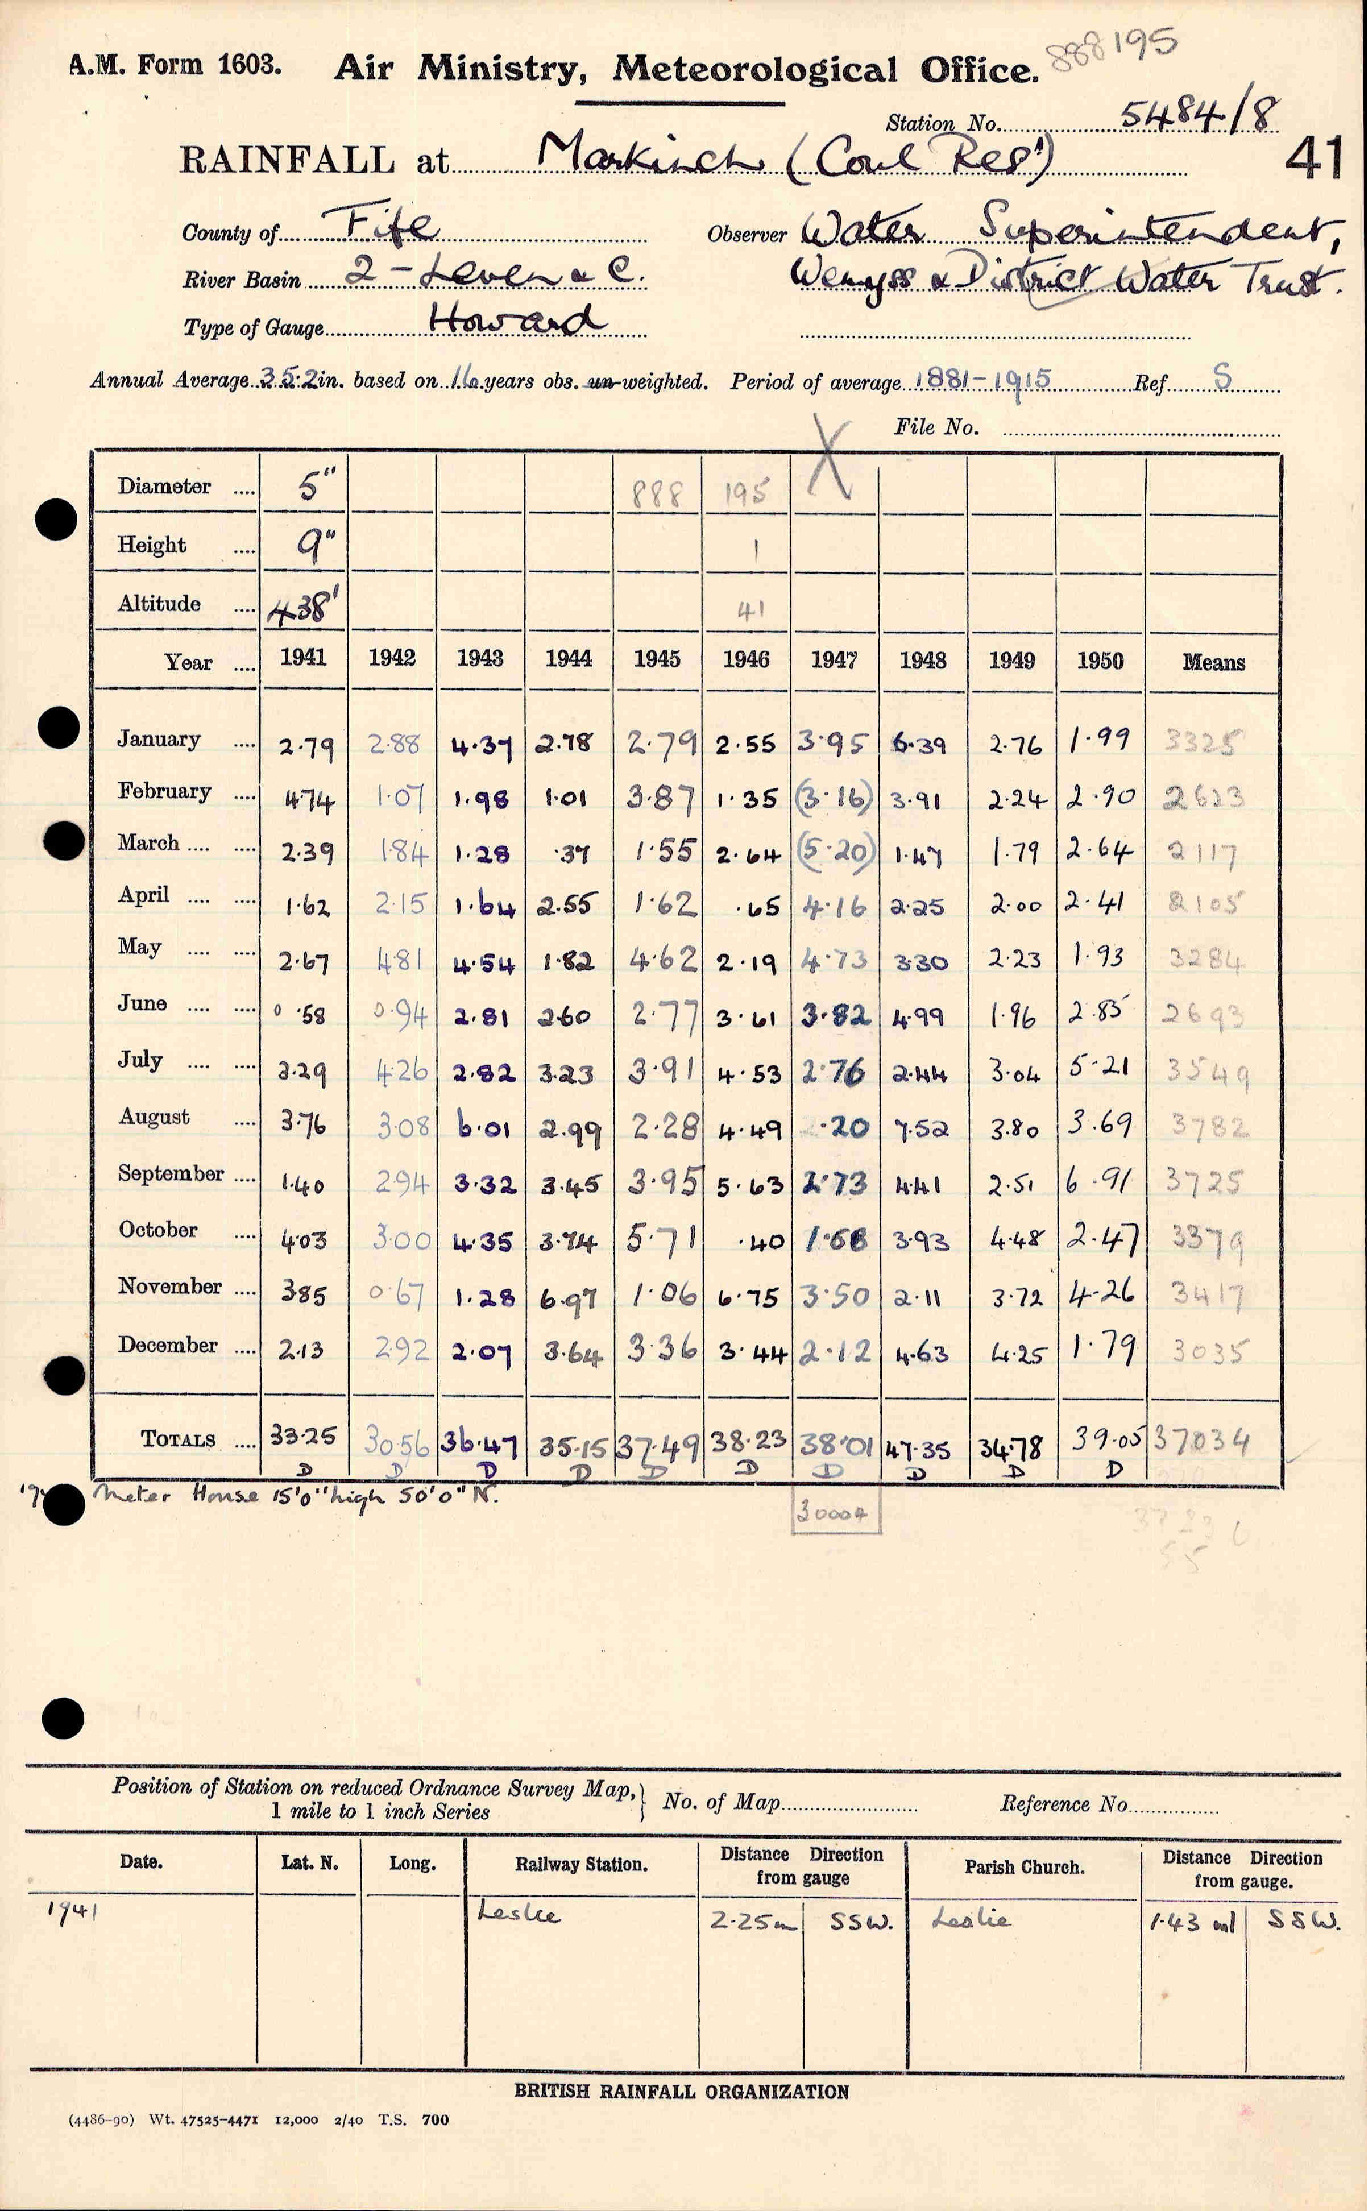 888195
A.M. Form 1603. Air Ministry, Meteorological Office.
Station No. 5484/8
RAINFALL at Markinch (Coul Resr) 41
County of Fife Observer Water Superintendent,
River Basin 2 - Leven & C. Wemyss & District Water Trust.
Type of Gauge Howard
Annual Average 35.2 in. based on 16 years obs. un-weighted. Period of average 1881-1915 Ref S
File No.
X
Diameter .... 5" 888 195
Height .... 9" 1
Altitude .... 438' 41
Year .... 1941 1942 1943 1944 1945 1946 1947 1948 1949 1950 Means
January .... 2.79 2.88 4.37 2.78 2.79 2.55 3.95 6.39 2.76 1.99 3325
February .... 4.74 1.07 1.98 1.01 3.87 1.35 (3.16) 3.91 2.24 2.90 2623
March .... .... 2.39 1.84 1.28 .37 1.55 2.64 (5.20) 1.47 1.79 2.64 2117
April .... .... 1.62 2.15 1.64 2.55 1.62 .65 4.16 2.25 2.00 2.41 2105
May .... .... 2.67 4.81 4.54 1.82 4.62 2.19 4.73 3.30 2.23 1.93 3284
June .... .... 0.58 0.94 2.81 2.60 2.77 3.61 3.82 4.99 1.96 2.85 2693
July .... .... 3.29 4.26 2.82 3.23 3.91 4.53 2.76 2.44 3.04 5.21 3549
August .... 3.76 3.08 6.01 2.99 2.28 4.49 .20 7.52 3.80 3.69 3782
September .... 1.40 2.94 3.32 3.45 3.95 5.63 2.73 4.41 2.51 6.91 3725
October .... 4.03 3.00 4.35 3.74 5.71 .40 1.68 3.93 4.48 2.47 3379
November .... 3.85 0.67 1.28 6.97 1.06 6.75 3.50 2.11 3.72 4.26 3417
December .... 2.13 2.92 2.07 3.64 3.36 3.44 2.12 4.63 4.25 1.79 3035
TOTALS .... 33.25 30.56 36.47 35.15 37.49 38.23 38.01 47.35 34.78 39.05 37034
D D D D D D D D D D
Meter House 15'0" high 50'0" N.
30004
Position of Station on reduced Ordnance Survey Map,} No. of Map Reference No.
1 mile to 1 inch Series
Date. Lat. N. Long. Railway Station. Distance from gauge Direction Parish Church. Distance from gauge. Direction
1941 Leslie 2.25m SSW. Leslie 1.43 ml SSW.
BRITISH RAINFALL ORGANIZATION
(4486-90) Wt. 47525-4471 12,000 2/40 T.S. 700